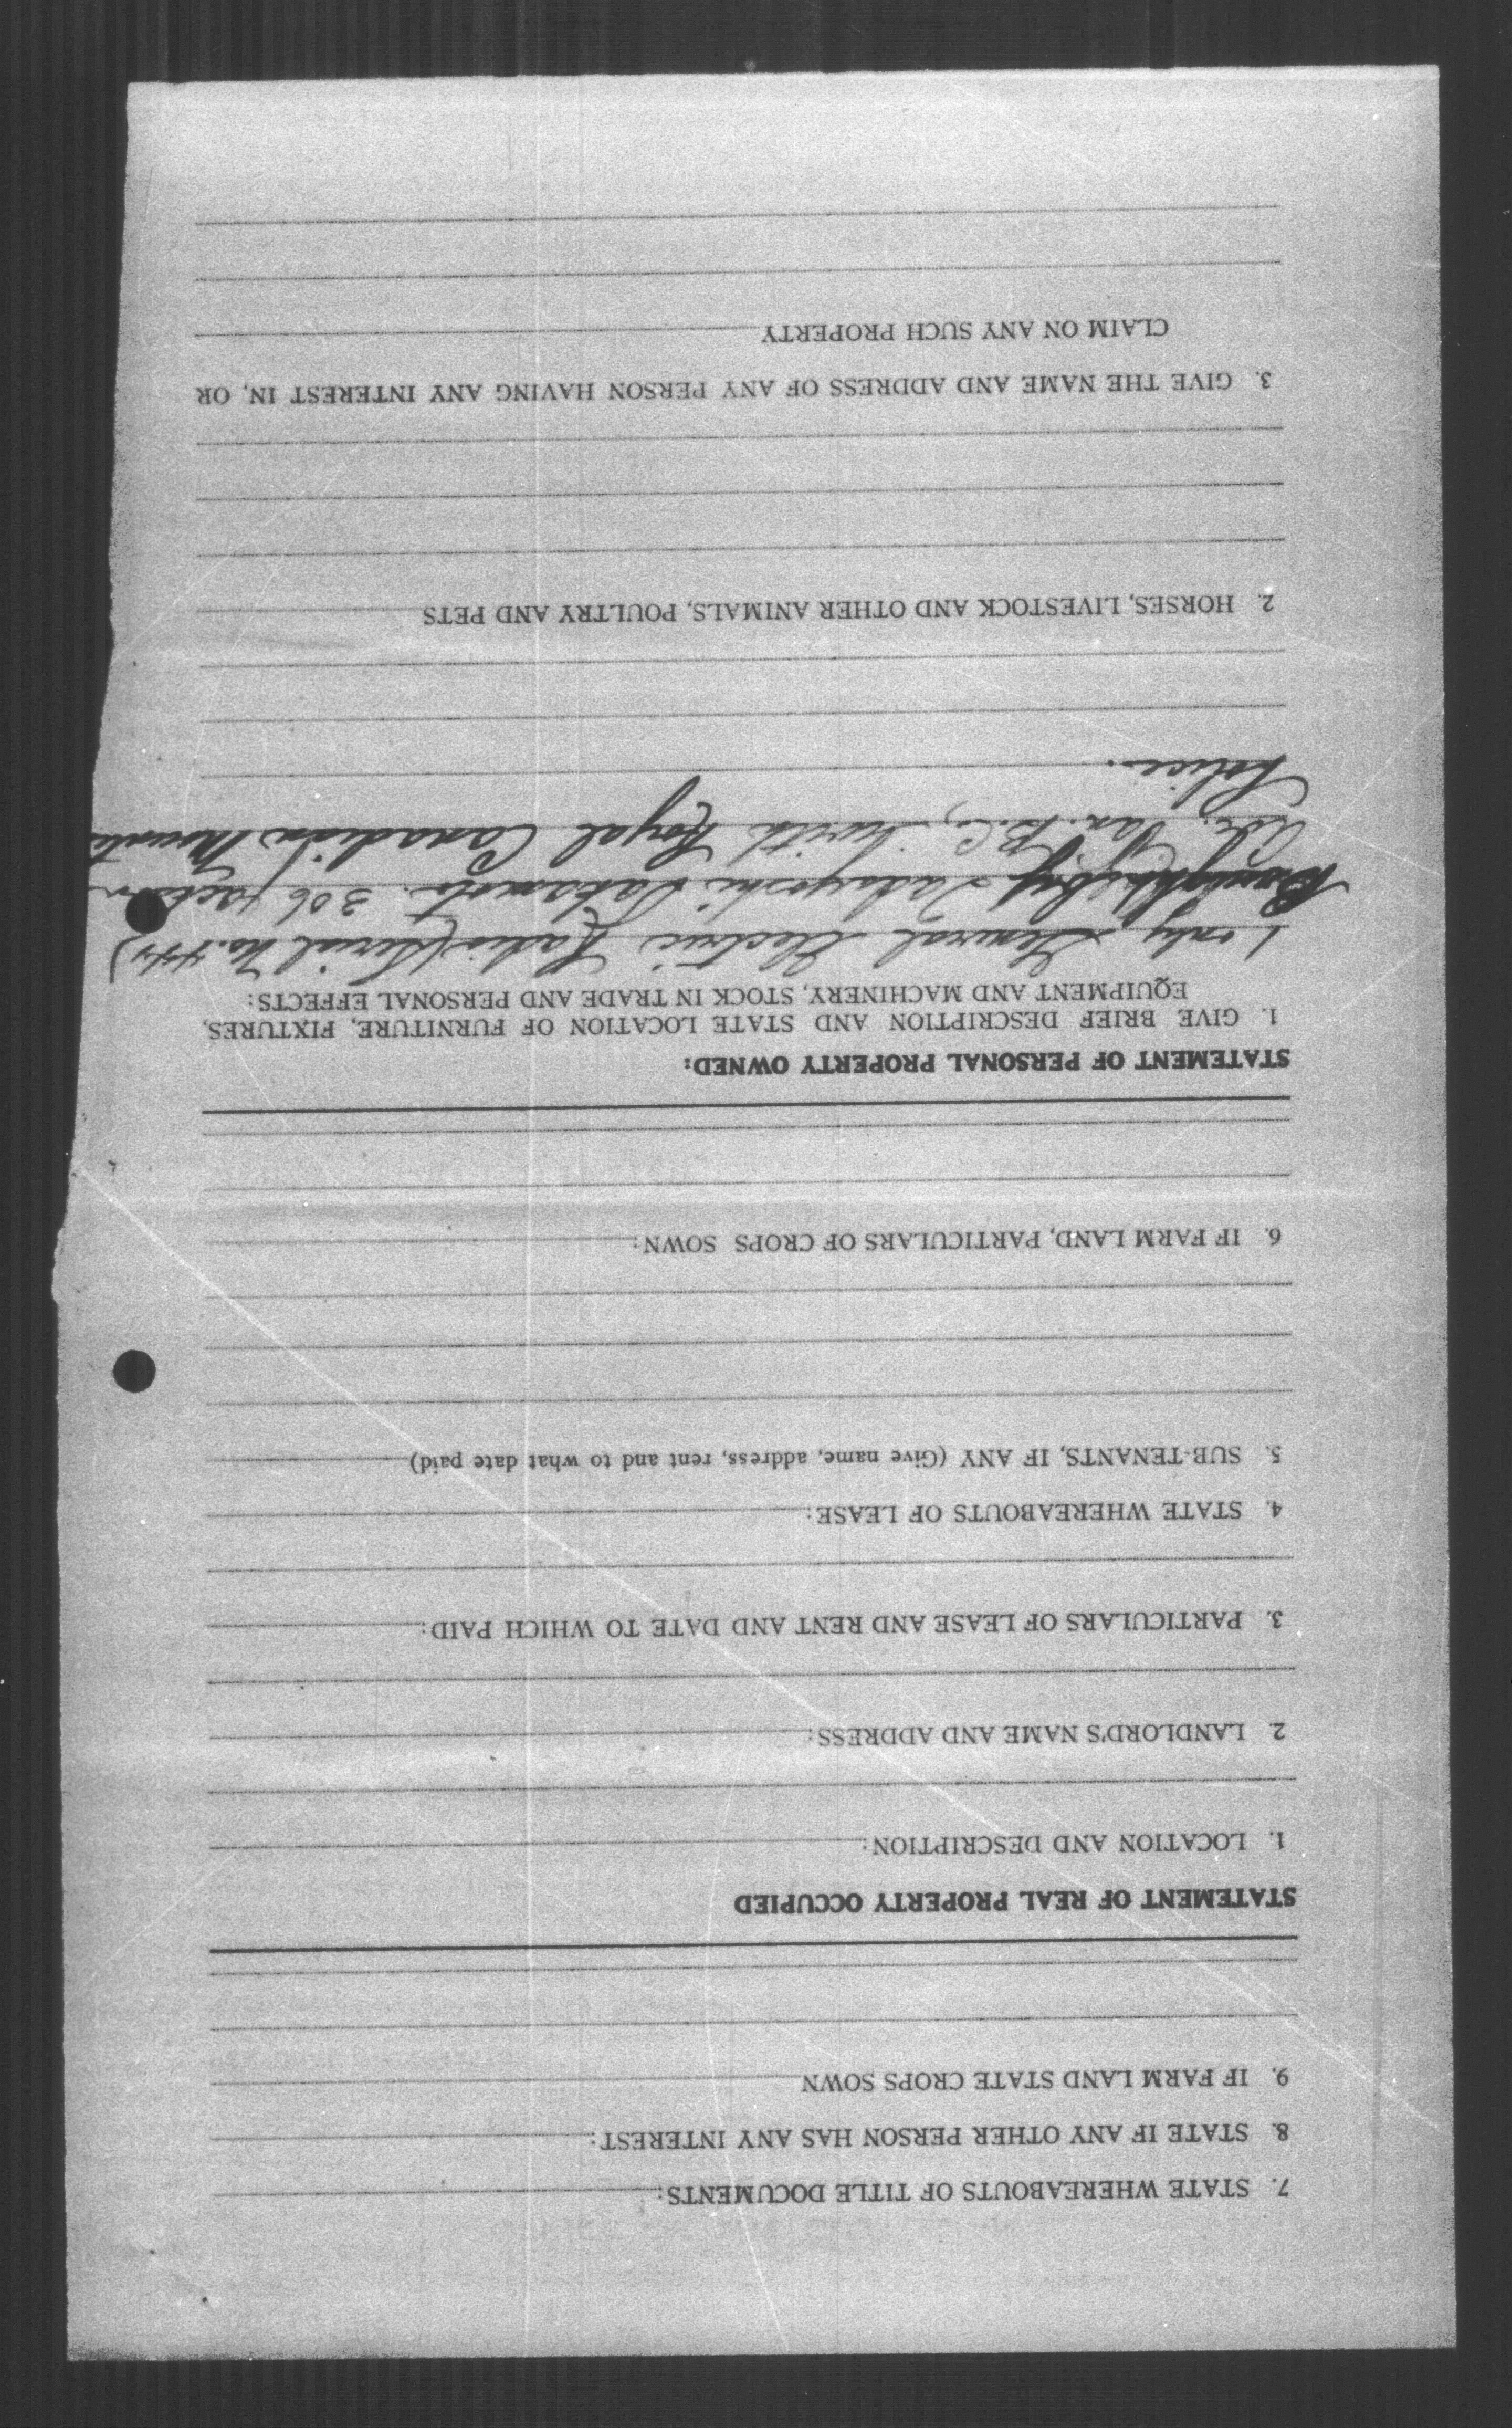 7. STATE WHEREABOUTS OF TITLE DOCUMENTS:
8. STATE IF ANY OTHER PERSON HAS ANY INTEREST:
9. IF FARM LAND STATE CROPS SOWN
STATEMENT OF REAL PROPERTY OCCUPIED
1. LOCATION AND DESCRIPTION:
2. LANDLORD'S NAME AND ADDRESS:
3. PARTICULARS OF LEASE AND RENT AND DATE TO WHICH PAID:
4. STATE WHEREABOUTS OF LEASE:
5. SUB-TENANTS, IF ANY (Give name, address, rent and to what date paid)
6. IF FARM LAND, PARTICULARS OF CROPS SOWN:
STATEMENT OF PERSONAL PROPERTY OWNED:
1. GIVE BRIEF DESCRIPTION AND STATE LOCATION OF FURNITURE, FIXTURES,
EQUIPMENT AND MACHINERY, STOCK IN TRADE AND PERSONAL EFFECTS:
1 only General Electric Radio (Serial No.
by Sakamoto. 306 Jackson
Ave. Van. B.C., with Royal Canadian Mounted
Police.
2. HORSES, LIVESTOCK AND OTHER ANIMALS, POULTRY AND PETS
3. GIVE THE NAME AND ADDRESS OF ANY PERSON HAVING ANY INTEREST IN, OR
CLAIM ON ANY SUCH PROPERTY